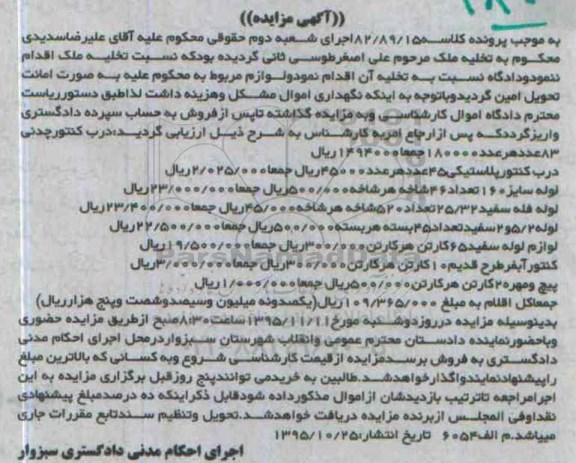 ((آگهی مزایده))
به موجب پرونده کلاسه ۸۲/۸۹/۱۵اجرای شعبه دوم حقوقی محکوم علیه آقای علیرضاسدیدی
محکوم به تخلیه ملک مرحوم علی اصغرطوسی ثانی گردیده بودکه نسبت تخلیه ملک اقدام
ننمودودادگاه نسبت به تخلیه آن اقدام نمودولوازم مربوط به محکوم علیه به صورت امانت
تحویل امین گردیدوباتوجه به اینکه نگهداری اموال مشکل وهزینه داشت لذاطبق دستورریاست
محترم دادگاه اموال کارشناسی وبه مزایده گذاشته تاپس ازفروش به حساب سپرده دادگستری
واریزگرددکه پس ازارجاع امربه کارشناس به شرح ذیل ارزیابی گردید:درب کنتورچدنی
۸۳عددهرعدد۱۸۰۰۰۰جمعا۱۴۹۴۰۰۰ریال
درب کنتورپلاستیکی۴۵عددهرعدد۴۵۰۰۰ریال جمعا۲/۰۲۵/۰۰۰ریال
لوله سایز۱۶۰تعداد۴۶شاخه هرشاخه۵۰۰/۰۰۰ریال جمعا۲۳/۰۰۰/۰۰۰ریال
لوله فله سفید۲۵/۳۲تعداد۵۲۰شاخه هرشاخه۴۵/۰۰۰ریال جمعا۲۳/۴۰۰/۰۰۰ریال
لوله۲و۲/۵سفیدتعداد۴۵بسته هربسته۵۰۰/۰۰۰ریال جمعا۲۲/۵۰۰/۰۰۰ریال
لوازم لوله سفید۶۵کارتن هرکارتن۳۰۰/۰۰۰ریال جمعا۱۹/۵۰۰/۰۰۰ریال
کنتورآبفرطرح قدیم۱۰کارتن هرکارتن۳۰۰/۰۰۰ریال جمعا۳/۰۰۰/۰۰۰ریال
پیچ ومهره۲۰کارتن هرکارتن۵۰/۰۰۰ریال جمعا۱/۰۰۰/۰۰۰ریال
جمعاکل اقلام به مبلغ ۱۰۹/۳۶۵/۰۰۰ریال(یکصدونه میلیون وسیصدوشصت وپنج هزارریال)
بدینوسیله مزایده درروزدوشنبه مورخ۱۳۹۵/۱۱/۱۱ساعت۸:۳۰صبح ازطریق مزایده حضوری
وباحضورنماینده دادستان محترم عمومی وانقلاب شهرستان سبزواردرمحل اجرای احکام مدنی
دادگستری به فروش برسد.مزایده ازقیمت کارشناسی شروع وبه کسانی که بالاترین مبلغ
راپیشنهادنمایندواگذارخواهدشد.طالبین به خریدمی توانندپنج روزقبل برگزاری مزایده به این
اجرامراجعه تاترتیب بازدیدشان ازاموال مذکورداده شودقابل ذکراینکه ده درصدمبلغ پیشنهادی
نقداوفی المجلس ازبرنده مزایده دریافت خواهدشد.تحویل وتنظیم سندتابع مقررات جاری
میباشد.م الف۶۰۵۴ تاریخ انتشار:۱۳۹۵/۱۰/۲۵
اجرای احکام مدنی دادگستری سبزوار